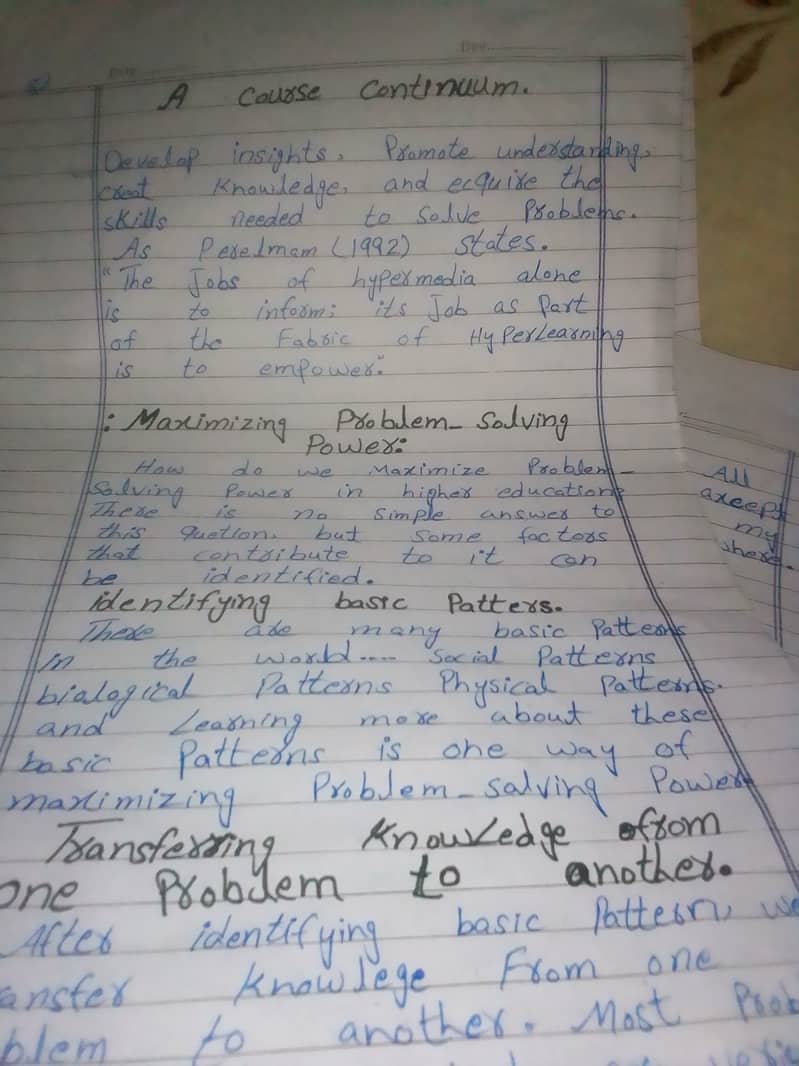 A Course Continuum.
Develop insights, Promote understanding,
creat Knowledge, and ecquire the
skills needed to Solve Problems.
As Perelmam (1992) states.
"The Jobs of hypermedia alone
is to inform; its Job as Part
of the Fabric of HyPerLearning
is to empower."
: Maximizing Problem- Solving
Power:
How do we Maximize Problem-
Solving Power in higher education?
There is no simple answer to
this quetion, but some factors
that contribute to it can
be identified.
identifying basic Patters.
There are many basic Patterns
in the world.... Social Patterns
bialogical Patterns Physical Patterns.
and Learning more about these
basic Patterns is one way of
maximizing Problem-salving Power
Transferring Knowledge from
one Probdem to another.
After identifying basic Pattern, we
ansfer Knowlege From one
blem to another. Most Prob
All
axcept
my